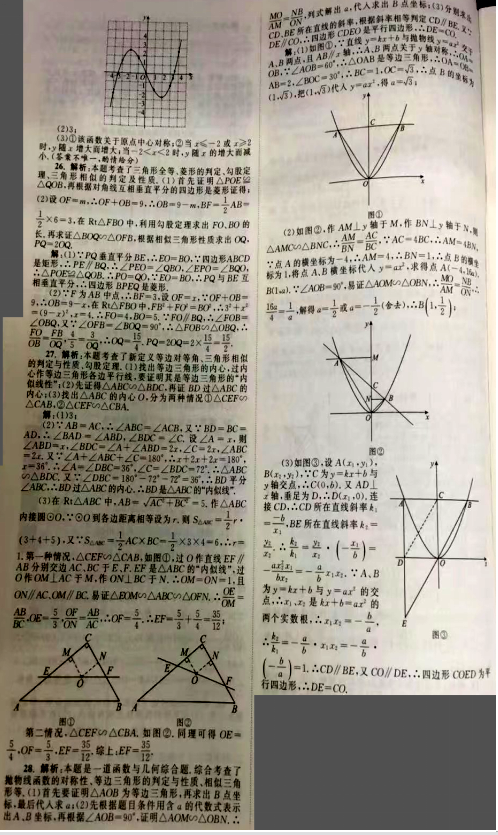 (2)3;
(3)①该函数关于原点中心对称;②当x≤-2或x≥2
时,y随x增大而增大,当-2<x<2时,y随x的增大而减
小.(答案不唯一,酌情给分)
26. 解析:本题考查了三角形全等、菱形的判定、勾股定
理、三角形相似的判定及性质.(1)首先证明△POE≌
△QOB,再根据对角线互相垂直平分的四边形是菱形证得;
(2)设OF=m,∴OF+OB=9,∴OB=9-m,BF=½AB=
½×6=3,在Rt△FBO中,利用勾股定理求出FO、BO的
长.再求证△BOQ∽△OFB,根据相似三角形性质求出OQ,
PQ=2OQ.
解:(1)∵PQ垂直平分BE,∴EO=BO,∵四边形ABCD
是矩形,∴PE∥BQ,∴∠PEO=∠QBO,∠EPO=∠BQO,
∴△POE≌△QOB,∴PO=QO,∵EO=BO,∴PQ与BE互
相垂直平分,∴四边形BPEQ是菱形.
(2)∵F为AB中点,∴BF=3,设OF=x,∵OF+OB=
9,∴OB=9-x,在Rt△FBO中,FB²+FO²=BO²,∴3²+x²
=(9-x)²,x=4,∴FO=4,BO=5.∵FO∥BQ,∴∠FOB=
∠OBQ,又∵∠OFB=∠BOQ=90°,∴△FOB∽△OBQ,∴
FO/OB=FB/OQ,4/5=3/OQ,∴OQ=15/4,PQ=2OQ=2×15/4=15/2.
27. 解析:本题考查了新定义等边对等角、三角形相似
的判定与性质、勾股定理.(1)找出等边三角形的内心,过内
心作等边三角形各边平行线,要证明其是等边三角形的"内
似线性";(2)先证得△ABC∽△BDC,再证BD过△ABC的
内心;(3)找出△ABC的内心O,分为两种情况①△CEF∽
△CAB,②△CEF∽△CBA.
解:(1)3;
(2)∵AB=AC,∴∠ABC=∠ACB,又∵BD=BC=
AD,∴∠BAD=∠ABD,∠BDC=∠C,设∠A=x,则
∠ABD=x,∠BDC=∠A+∠ABD=2x,∠C=2x,∠ABC
=2x,又∵∠A+∠ABC+∠C=180°,∴x+2x+2x=180°,
x=36°,∴∠A=∠DBC=36°,∠C=∠BDC=72°,∴△ABC
∽△BDC,又∵∠DBC=180°-72°-72°=36°,∴BD平分
∠ABC,∴BD过△ABC的内心,∴BD是△ABC的"内似线".
(3)在Rt△ABC中,AB=√(AC²+BC²)=5,作△ABC
内接圆⊙O,∵⊙O到各边距离相等设为r,则S△ABC=½r·
(3+4+5),又∵S△ABC=½AC×BC=½×3×4=6,∴r=
1.第一种情况,△CEF∽△CAB,如图①,过O作直线EF∥
AB分别交边AC、BC于E、F,EF是△ABC的"内似线",过
O作OM⊥AC于M,作ON⊥BC于N,∴OM=ON=1,且
ON∥AC,OM∥BC,易证△EOM∽△ABC∽△OFN,∴OE/OM=
AB/BC,OE=5/3,OF/ON=AB/AC,∴OF=5/4,∴EF=5/4+5/3=35/12;
C
M
N
E
O
F
A
B
图①
C
M
N
E
O
F
A
B
图②
第二情况,△CEF∽△CBA,如图②,同理可得OE=
5/4,OF=5/3,EF=35/12,综上:EF=35/12.
28. 解析:本题是一道函数与几何综合题.综合考查了
抛物线函数的对称性、等边三角形的判定与性质、相似三角
形等.(1)首先要证明△AOB为等边三角形,再求出B点坐
标,最后代入求a;(2)先根据题目条件用含a的代数式表示
出A、B坐标,再根据∠AOB=90°,证明△AOM∽△OBN,∴
MO/AM=NB/ON,列式解出a,代入求出B点坐标;(3)分别求出
CD、BE所在直线的斜率,根据斜率相等判定CD∥BE,又∵
DE∥CO,∴四边形CDEO是平行四边形,∴DE=CO.
解:(1)如图①,∵直线y=kx+b与抛物线y=ax²交于
A、B两点,且AB∥x轴,∴A、B两点关于y轴对称,∴OA=
OB,∵∠AOB=60°,∴△OAB是等边三角形,∴OA=OB=
AB=2,∠BOC=30°,∴BC=1,OC=√3,∴点B的坐标为
(1,√3),把(1,√3)代入y=ax²,得a=√3;
y
A
C
B
O
x
图①
(2)如图②,作AM⊥y轴于M,作BN⊥y轴于N,则
△AMC∽△BNC,∴AM/BN=AC/BC,∵AC=4BC,∴AM=4BN,
∵点A的横坐标为-4,∴AM=4,∴BN=1,∴点B的横坐
标为1,将点A、B横坐标代入y=ax²,求得点A(-4,16a),
B(1,a).∵∠AOB=90°,易证△AOM∽△OBN,∴MO/AM=NB/ON,
16a/4=1/a,解得a=½或a=-½(舍去),∴B(1,½);
y
A
M
C
N
B
O
x
图②
(3)如图③,设A(x₁,y₁),
B(x₂,y₂),∵C为y=kx+b与
y轴交点,∴C(0,b),又AD⊥
x轴,垂足为D,∴D(x₁,0),连
接CD,∴CD所在直线斜率k₁
=-b/x₁,BE所在直线斜率k₂=
y₂/x₂,∴k₂/k₁=y₂/x₂·(-x₁/b)=
-ax₂²x₁/bx₂=-a/b x₁x₂,∵A、B
为y=kx+b与y=ax²的交
点,∴x₁、x₂是kx+b=ax²的
两个实数根,∴x₁x₂=-b/a,
∴k₂/k₁=-a/b·x₁x₂=-a/b·
(-b/a)=1,∴CD∥BE,又CO∥DE,∴四边形COED为平
行四边形,∴DE=CO.
y
A
C
B
D
O
x
E
图③